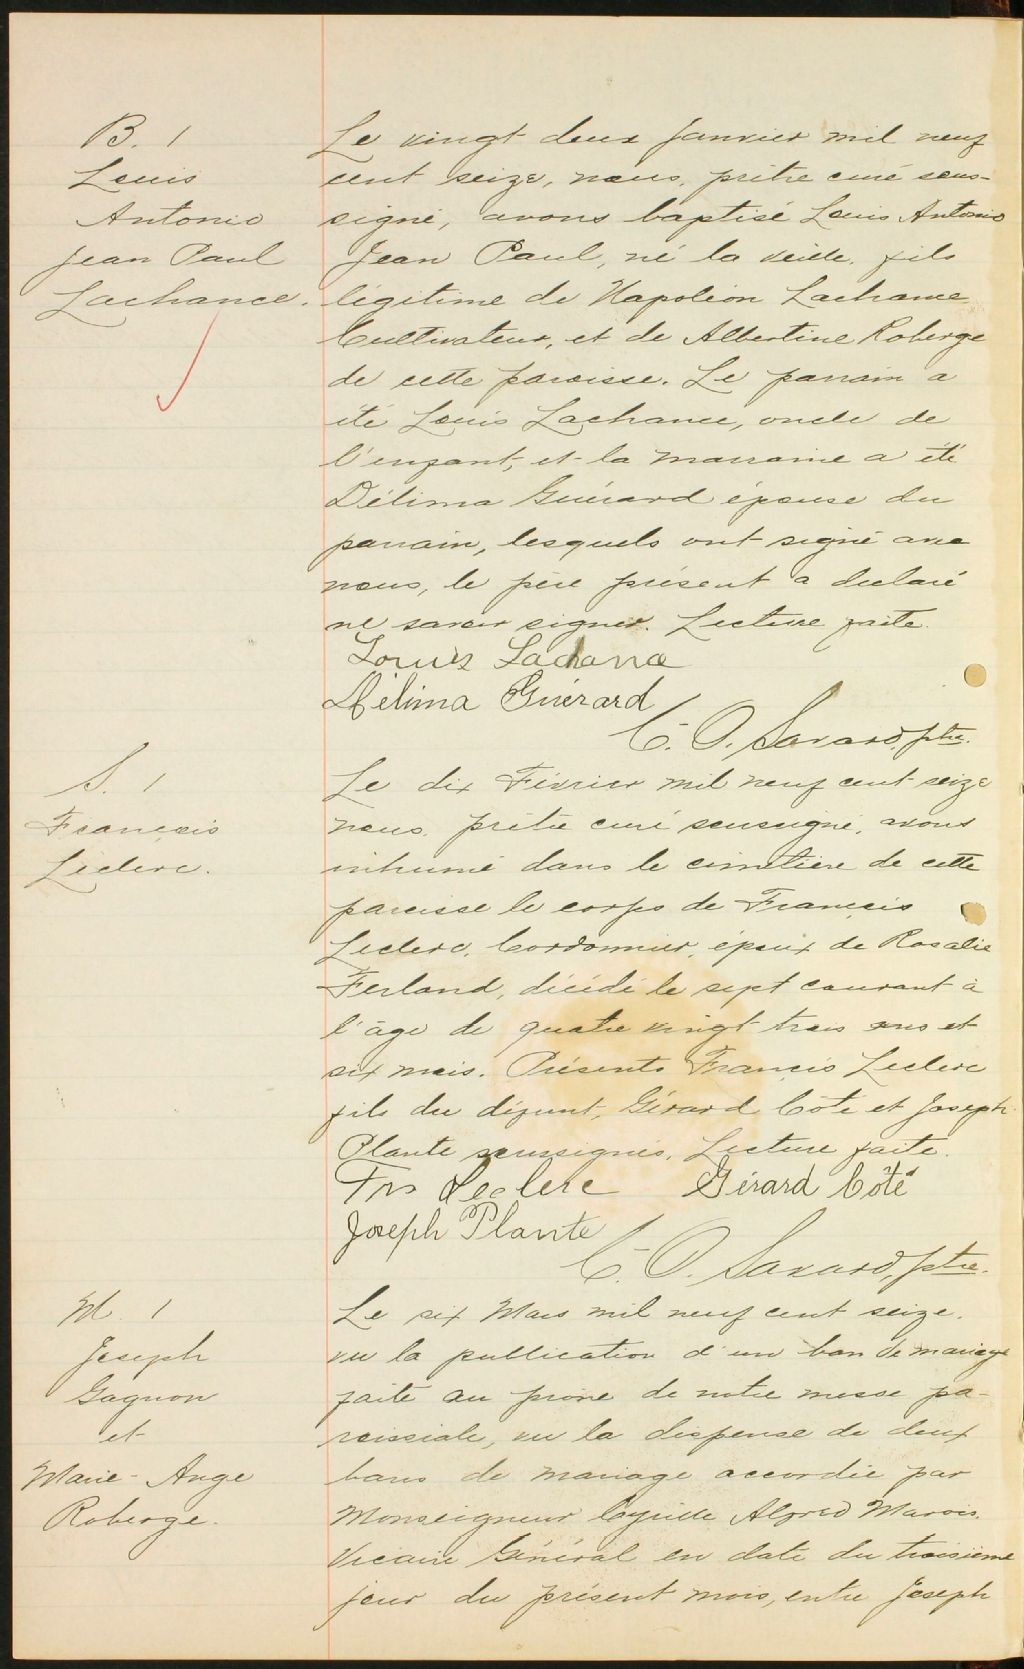 B. 1
Louis
Antonio
Jean Paul
Lachance.
Le vingt deux Janvier mil neuf
cent seize, nous, prêtre curé sous-
signé, avons baptisé Louis Antonio
Jean Paul, né la veille, fils
légitime de Napoléon Lachance
Cultivateur, et de Albertine Roberge
de cette paroisse. Le parrain a
été Louis Lachance, oncle de
l'enfant, et la marraine a été
Délima Guérard épouse du
parrain, lesquels ont signé avec
nous, le père présent a déclaré
ne savoir signer. Lecture faite.
Louis Lachance
Délima Guérard
C. O. Savard, ptre.
S. 1
François
Leclerc.
Le dix Février mil neuf cent seize
nous, prêtre curé soussigné, avons
inhumé dans le cimetière de cette
paroisse le corps de François
Leclerc, Cordonnier, époux de Rosalie
Ferland, décédé le sept courant à
l'âge de quatre vingt trois ans et
six mois. Présents François Leclerc
fils du défunt, Gérard Côté et Joseph
Plante soussignés, Lecture faite.
Frs Leclerc Gérard Côté
Joseph Plante
C. O. Savard, ptre.
M. 1
Joseph
Gagnon
et
Marie-Ange
Roberge.
Le six Mars mil neuf cent seize,
vu la publication d'un ban de mariage
faite au prône de notre messe pa-
roissiale, vu la dispense de deux
bans de mariage accordée par
Monseigneur Cyrille Alfred Marois,
Vicaire Général en date du troisième
jour du présent mois, entre Joseph